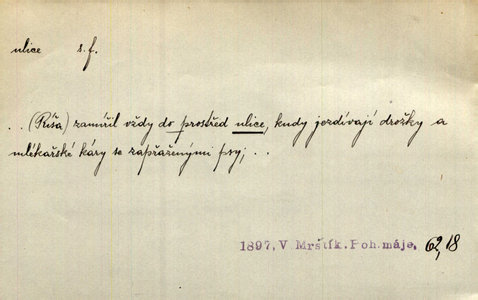 ulice s.f.
..(Ríša) zamířil vždy do prostřed ulice, kudy jezdívají drožky a
mlékařské káry se zapřaženými psy; ..
1897, V. Mrštík. Poh. máje, 62,18